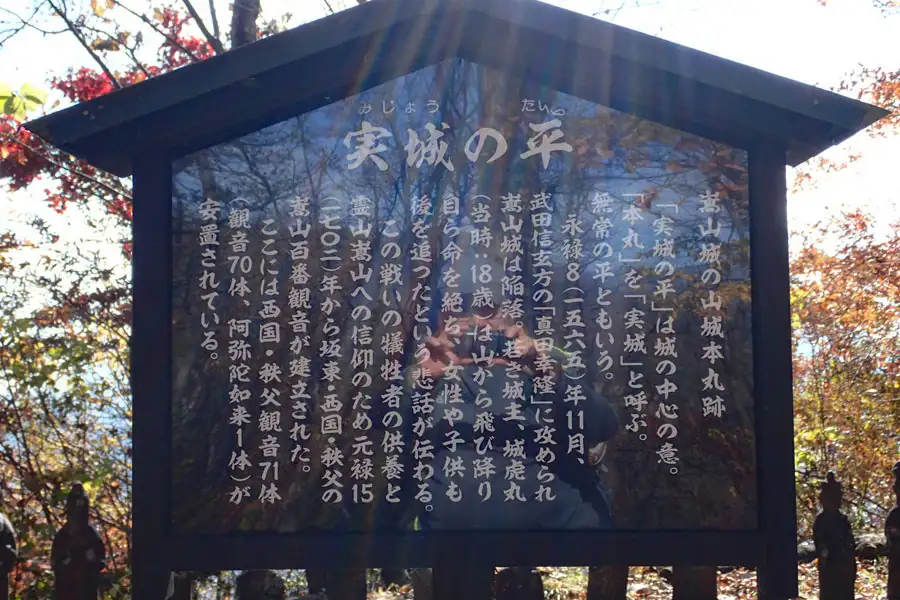 みじょう たいら
実城の平
嵩山城の山城本丸跡
「実城の平」は城の中心の意。
「本丸」を「実城」と呼ぶ。
無常の平ともいう。
永禄8(一五六五)年11月、
武田信玄方の「真田幸隆」に攻められ
嵩山城は陥落、若き城主、城虎丸
(当時:18歳)は山から飛び降り
自ら命を絶ち、女性や子供も
後を追ったという悲話が伝わる。
この戦いの犠牲者の供養と
霊山嵩山への信仰のため元禄15
(一七〇二)年から坂東・西国・秩父の
嵩山百番観音が建立された。
ここには西国・秩父観音71体
(観音70体、阿弥陀如来1体)が
安置されている。